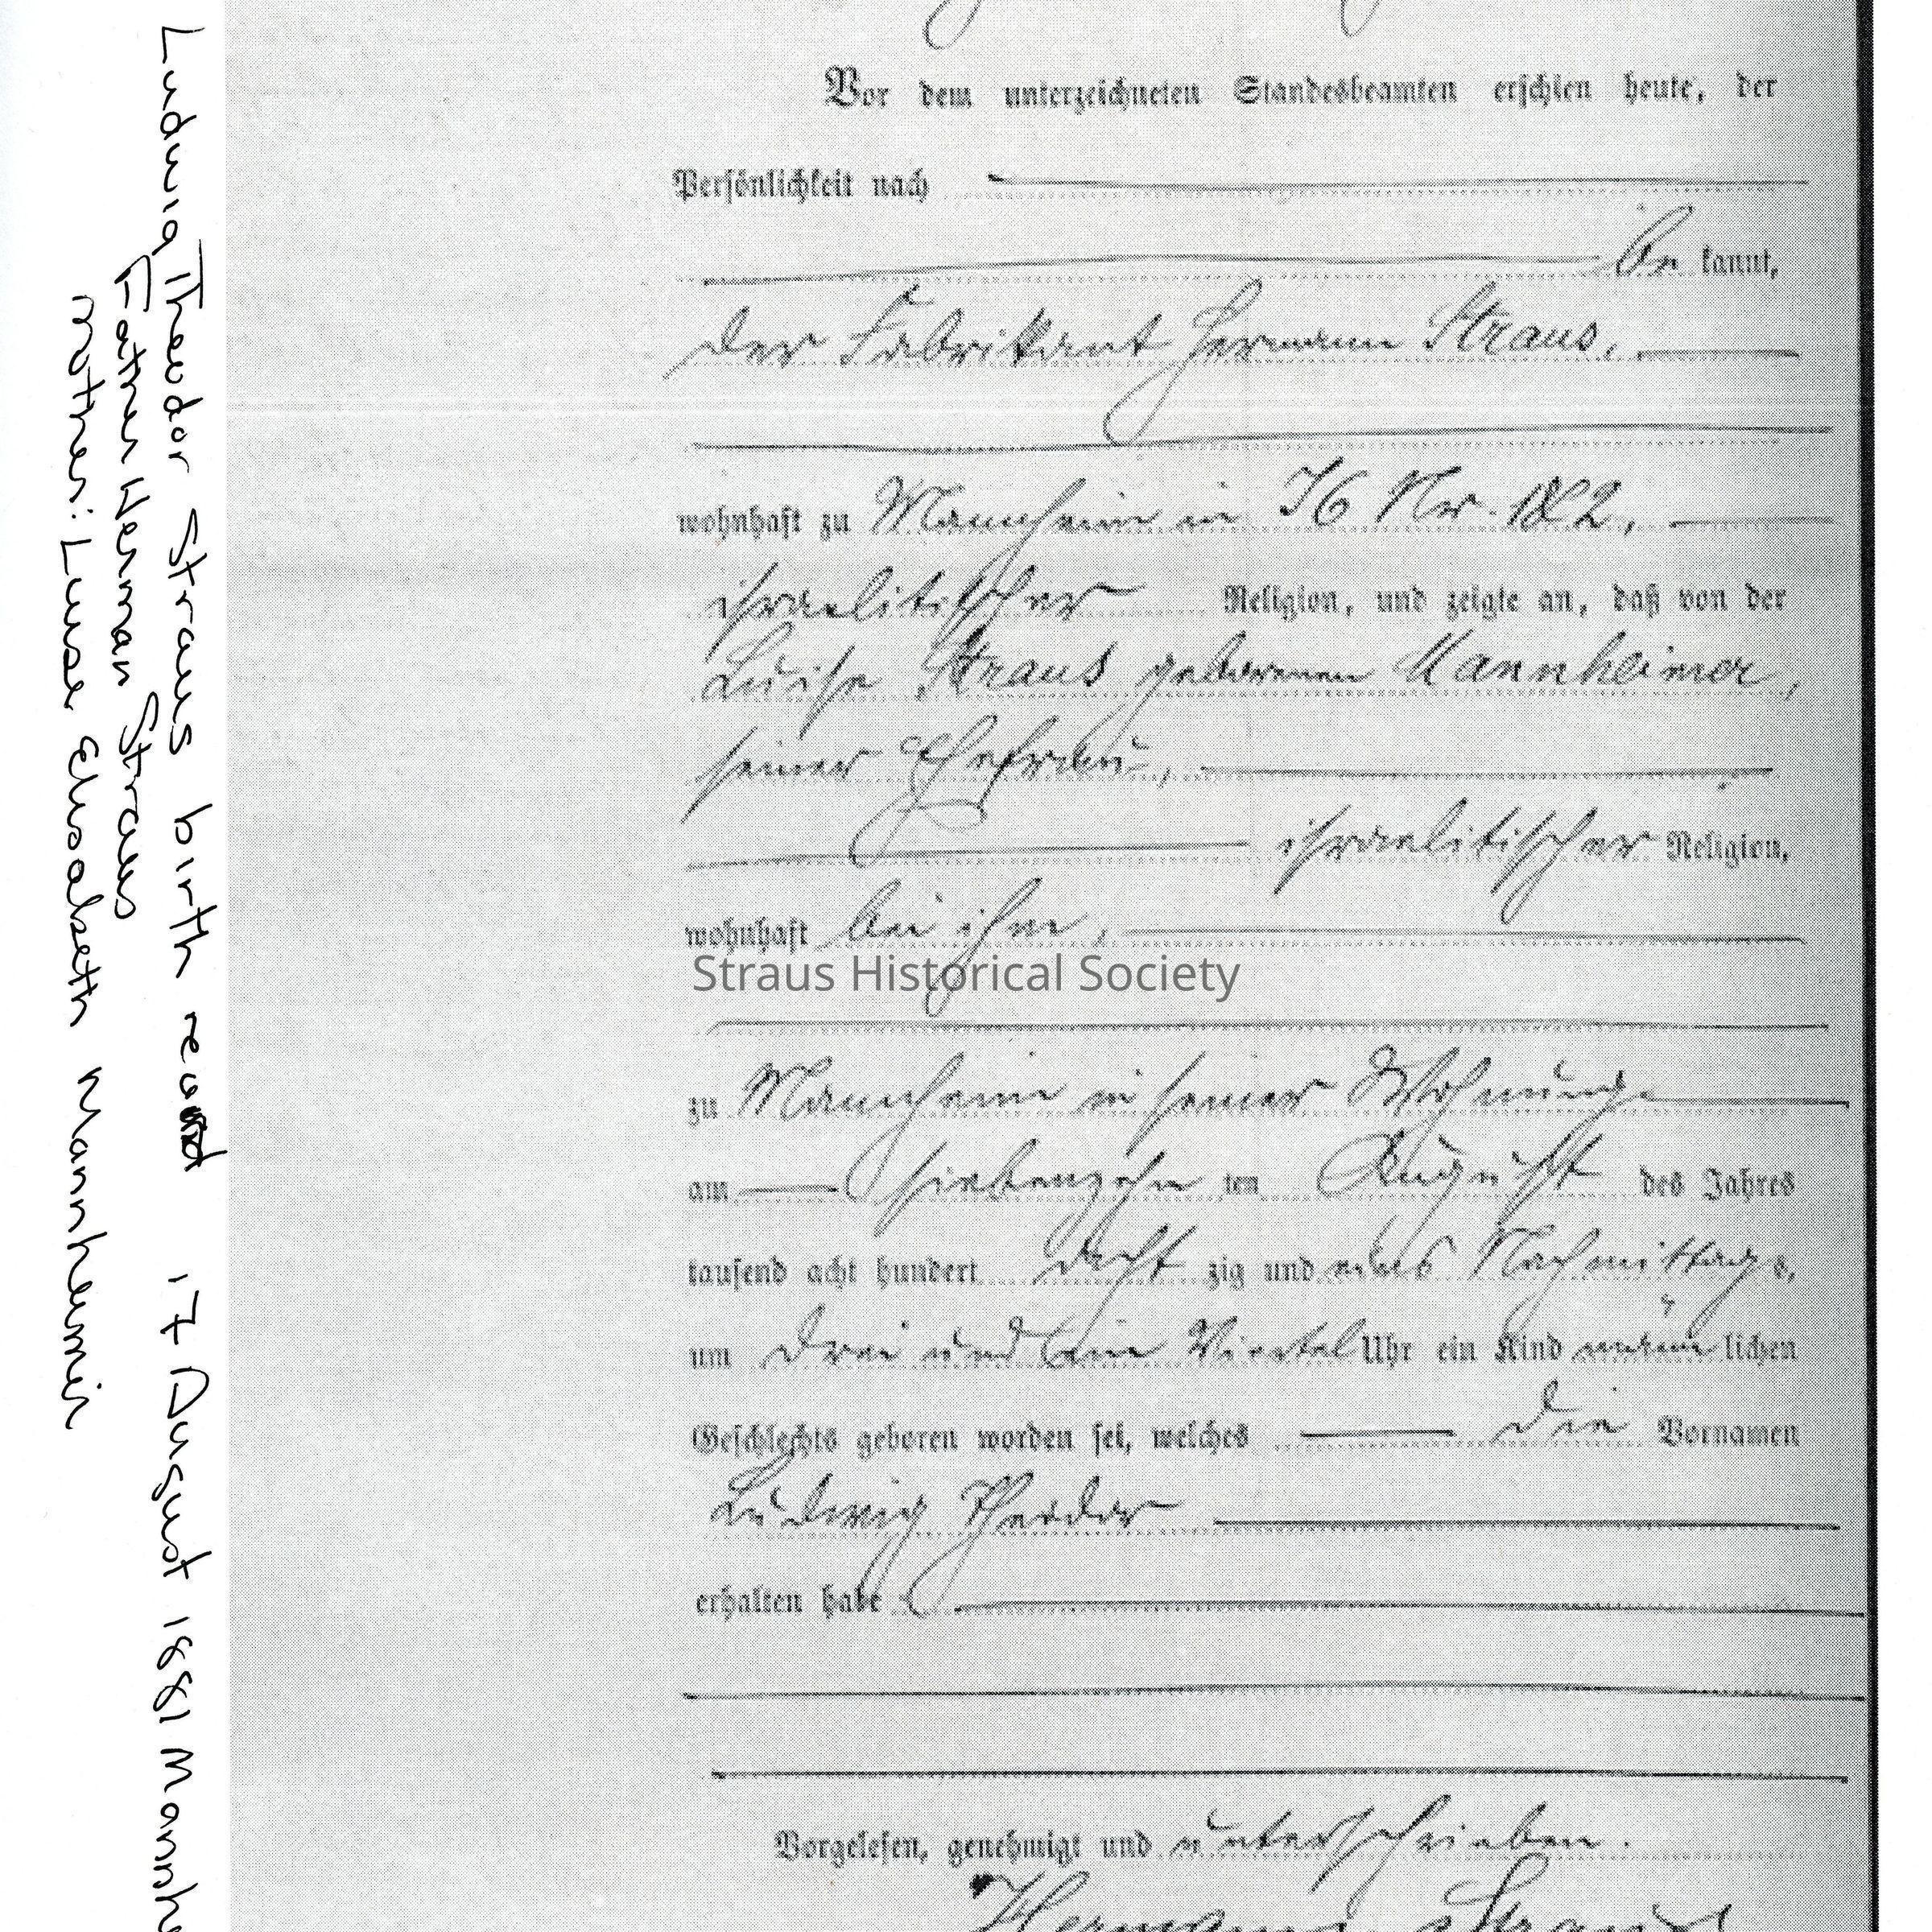 Vor dem unterzeichneten Standesbeamten erschien heute, der
Persönlichkeit nach
be kannt,
der Fabrikant Hermann Straus,
wohnhaft zu Mannheim in J6 Nr.
israelitischer Religion, und zeigte an, daß von der
Luise Straus geborenen Mannheimer,
seiner Ehefrau,
israelitischer Religion,
wohnhaft bei ihm,
Straus Historical Society
zu Mannheim in seiner Wohnung
am siebenzehn ten August des Jahres
tausend acht hundert acht zig und eins Nachmittags,
um drei und ein Viertel Uhr ein Kind männ lichen
Geschlechts geboren worden sei, welches die Vornamen
Ludwig Theodor
erhalten habe
Vorgelesen, genehmigt und unterschrieben.
Hermann Straus
Ludwig Theodor Straus birth record 17 August 1881 Mannhe
Father Herman Straus
Mother: Luise Elisabeth Mannheimer